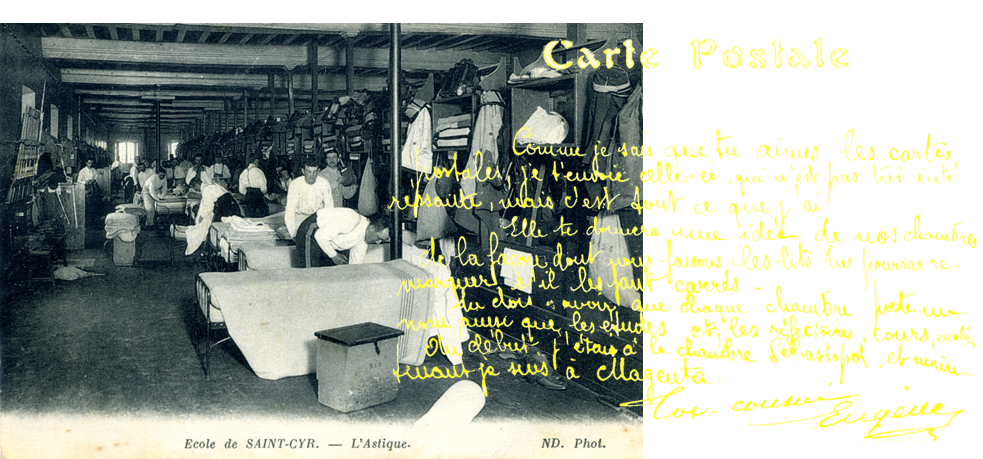 Carte Postale
Comme je sais que tu aimes les cartes
postales, je t'envoie celle-ci, qui n'est pas très inté
ressante, mais c'est tout ce que j'ai
Elle te donnera une idée de nos chambres
de la façon dont nous faisons les lits tu pourras re-
marquer s'il les faut carrés -
tu dois savoir, que chaque chambre porte un
nom ainsi que, les études et, les réfectoires, Cours,
Au début j'étais à la chambre Sébastopol, et main-
tenant je suis à Magenta.
Ton cousin Eugène
Ecole de SAINT-CYR. — L'Astique.
ND. Phot.